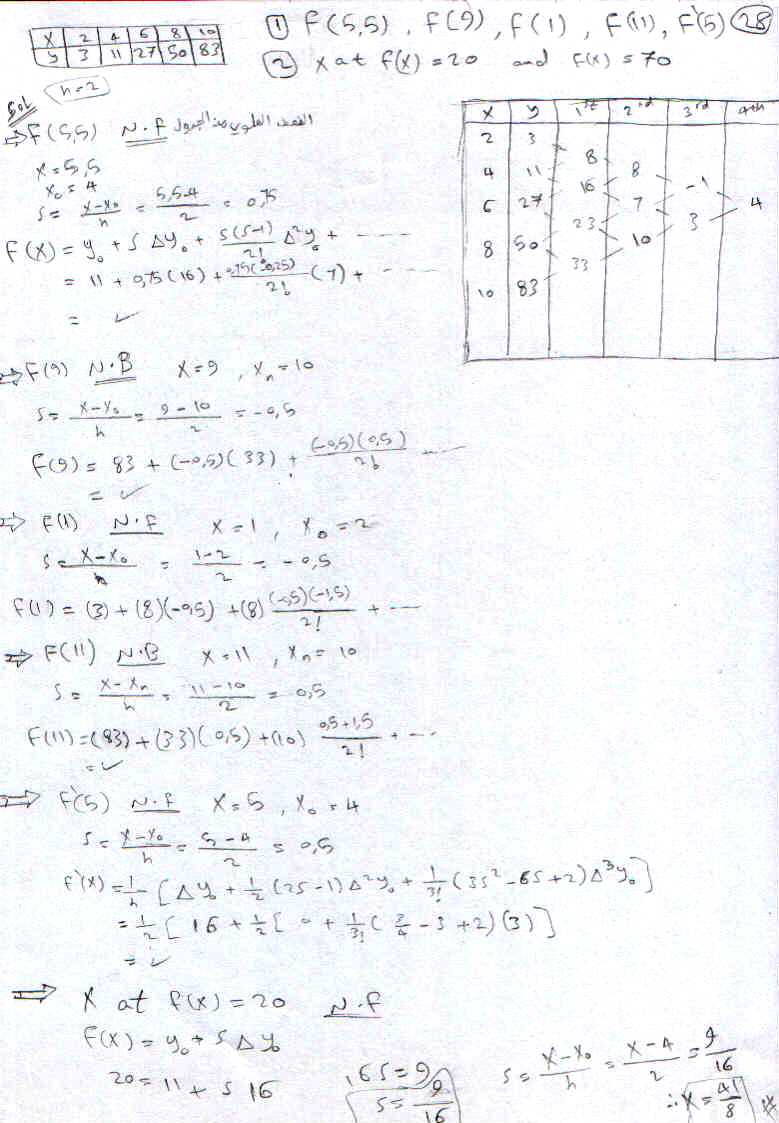 x 2 4 6 8 10
y 3 11 27 50 83
1 F(5,5) , F(9) , F(1) , F(11) , F'(5) 28
2 x at f(x) = 20 and f(x) = 70
h=2
Sol
⇒ F(5,5) N.F
x y 1st 2nd 3rd 4th
2 3
8
4 11 8
16 -1
6 27 7 4
23 3
8 50 10
33
10 83
x = 5,5
x₀ = 4
S = (x-x₀)/h = (5,5-4)/2 = 0,75
F(x) = y₀ + S Δy₀ + S(S-1)/2! Δ²y₀ + ----
= 11 + 0,75(16) + 0,75(-0,25)/2! (7) + ----
= ✓
⇒ F(9) N.B x=9 , xₙ=10
S = (x-x₀)/h = (9-10)/2 = -0,5
F(9) = 83 + (-0,5)(33) + (-0,5)(0,5)/2! ----
= ✓
⇒ F(1) N.F x=1 , x₀=2
S = (x-x₀)/h = (1-2)/2 = -0,5
F(1) = (3) + (8)(-0,5) + (8) (-0,5)(-1,5)/2! + ----
⇒ F(11) N.B x=11 , xₙ=10
S = (x-xₙ)/h = (11-10)/2 = 0,5
F(11) = (83) + (33)(0,5) + (10) 0,5+1,5/2! + ----
= ✓
⇒ F'(5) N.F x=5 , x₀=4
S = (x-x₀)/h = (5-4)/2 = 0,5
f'(x) = 1/h [Δy₀ + 1/2 (2S-1) Δ²y₀ + 1/3! (3S²-6S+2) Δ³y₀]
= 1/2 [16 + 1/2 [0 + 1/3! (3/4 - 3 + 2)(3)]
= ✓
⇒ x at f(x) = 20 N.F
F(x) = y₀ + S Δy₀
20 = 11 + S 16
16S = 9
S = 9/16
S = (x-x₀)/h = (x-4)/2 = 9/16
∴ x = 41/8